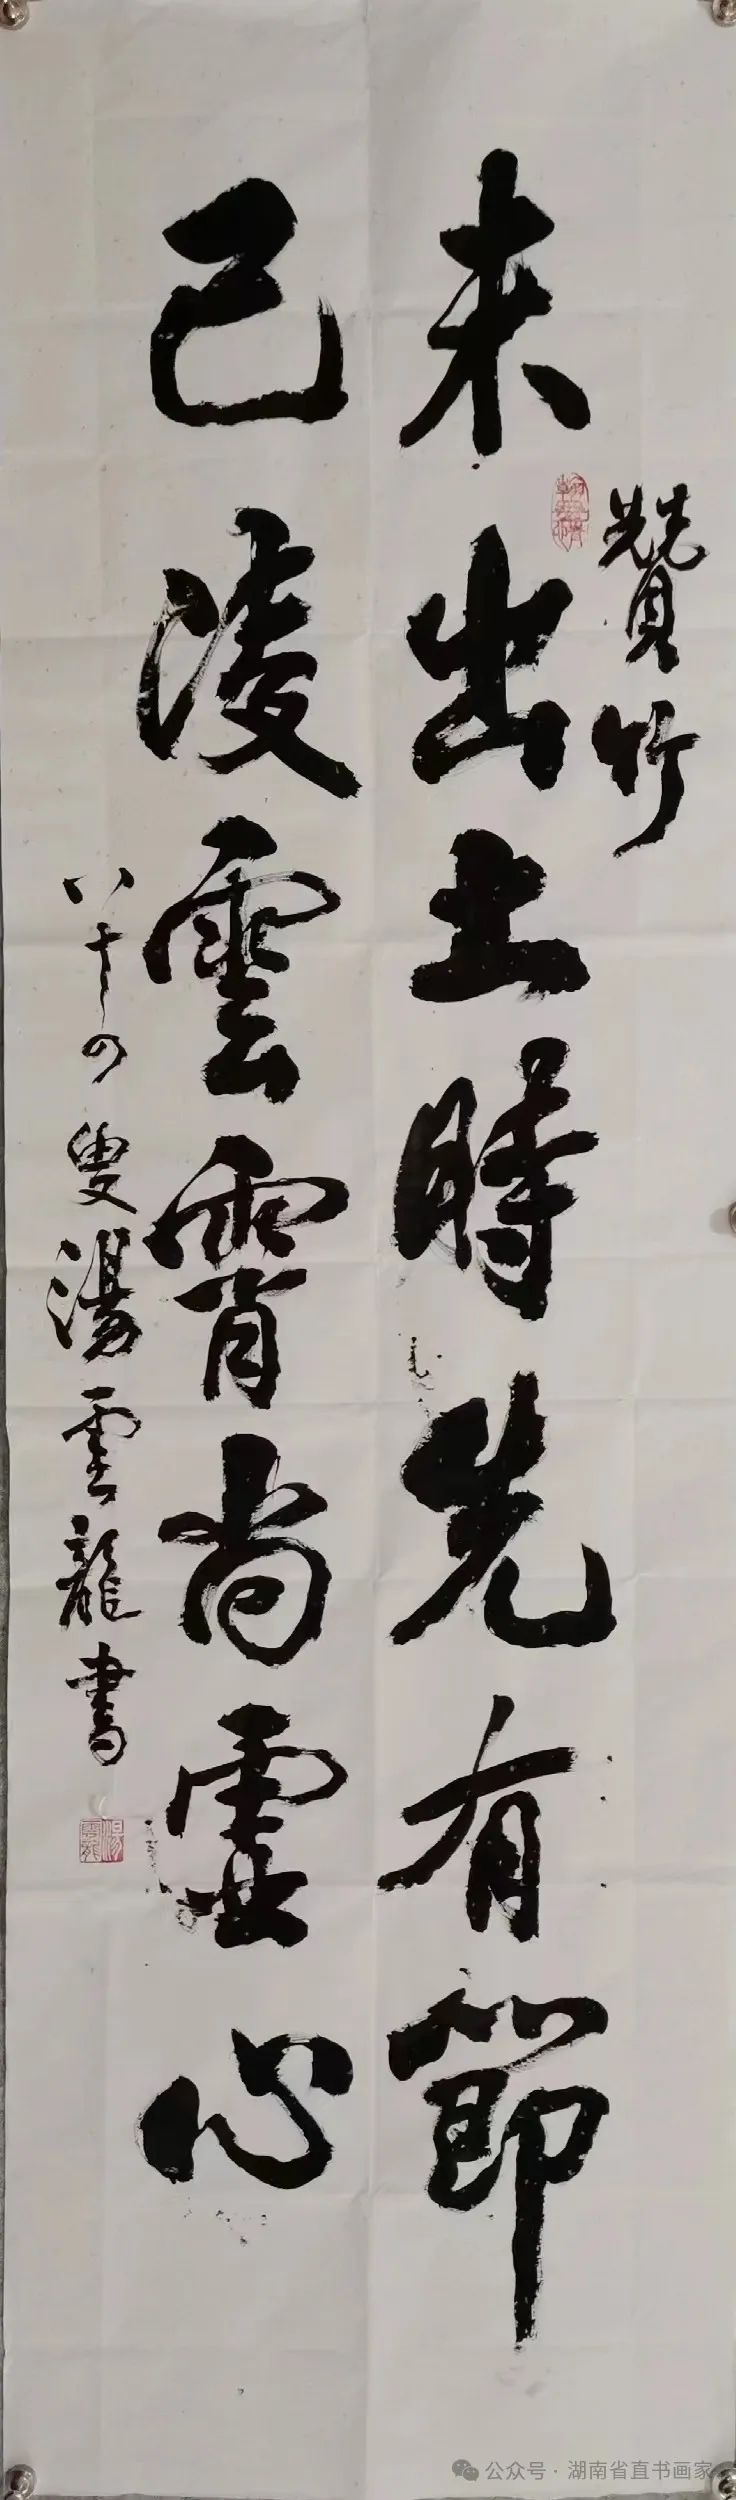 贊竹
未出土時先有節
已淩雲霄尚虛心
八十四叟湯雲龍書
湯雲龍
公众号·湖南省直书画家